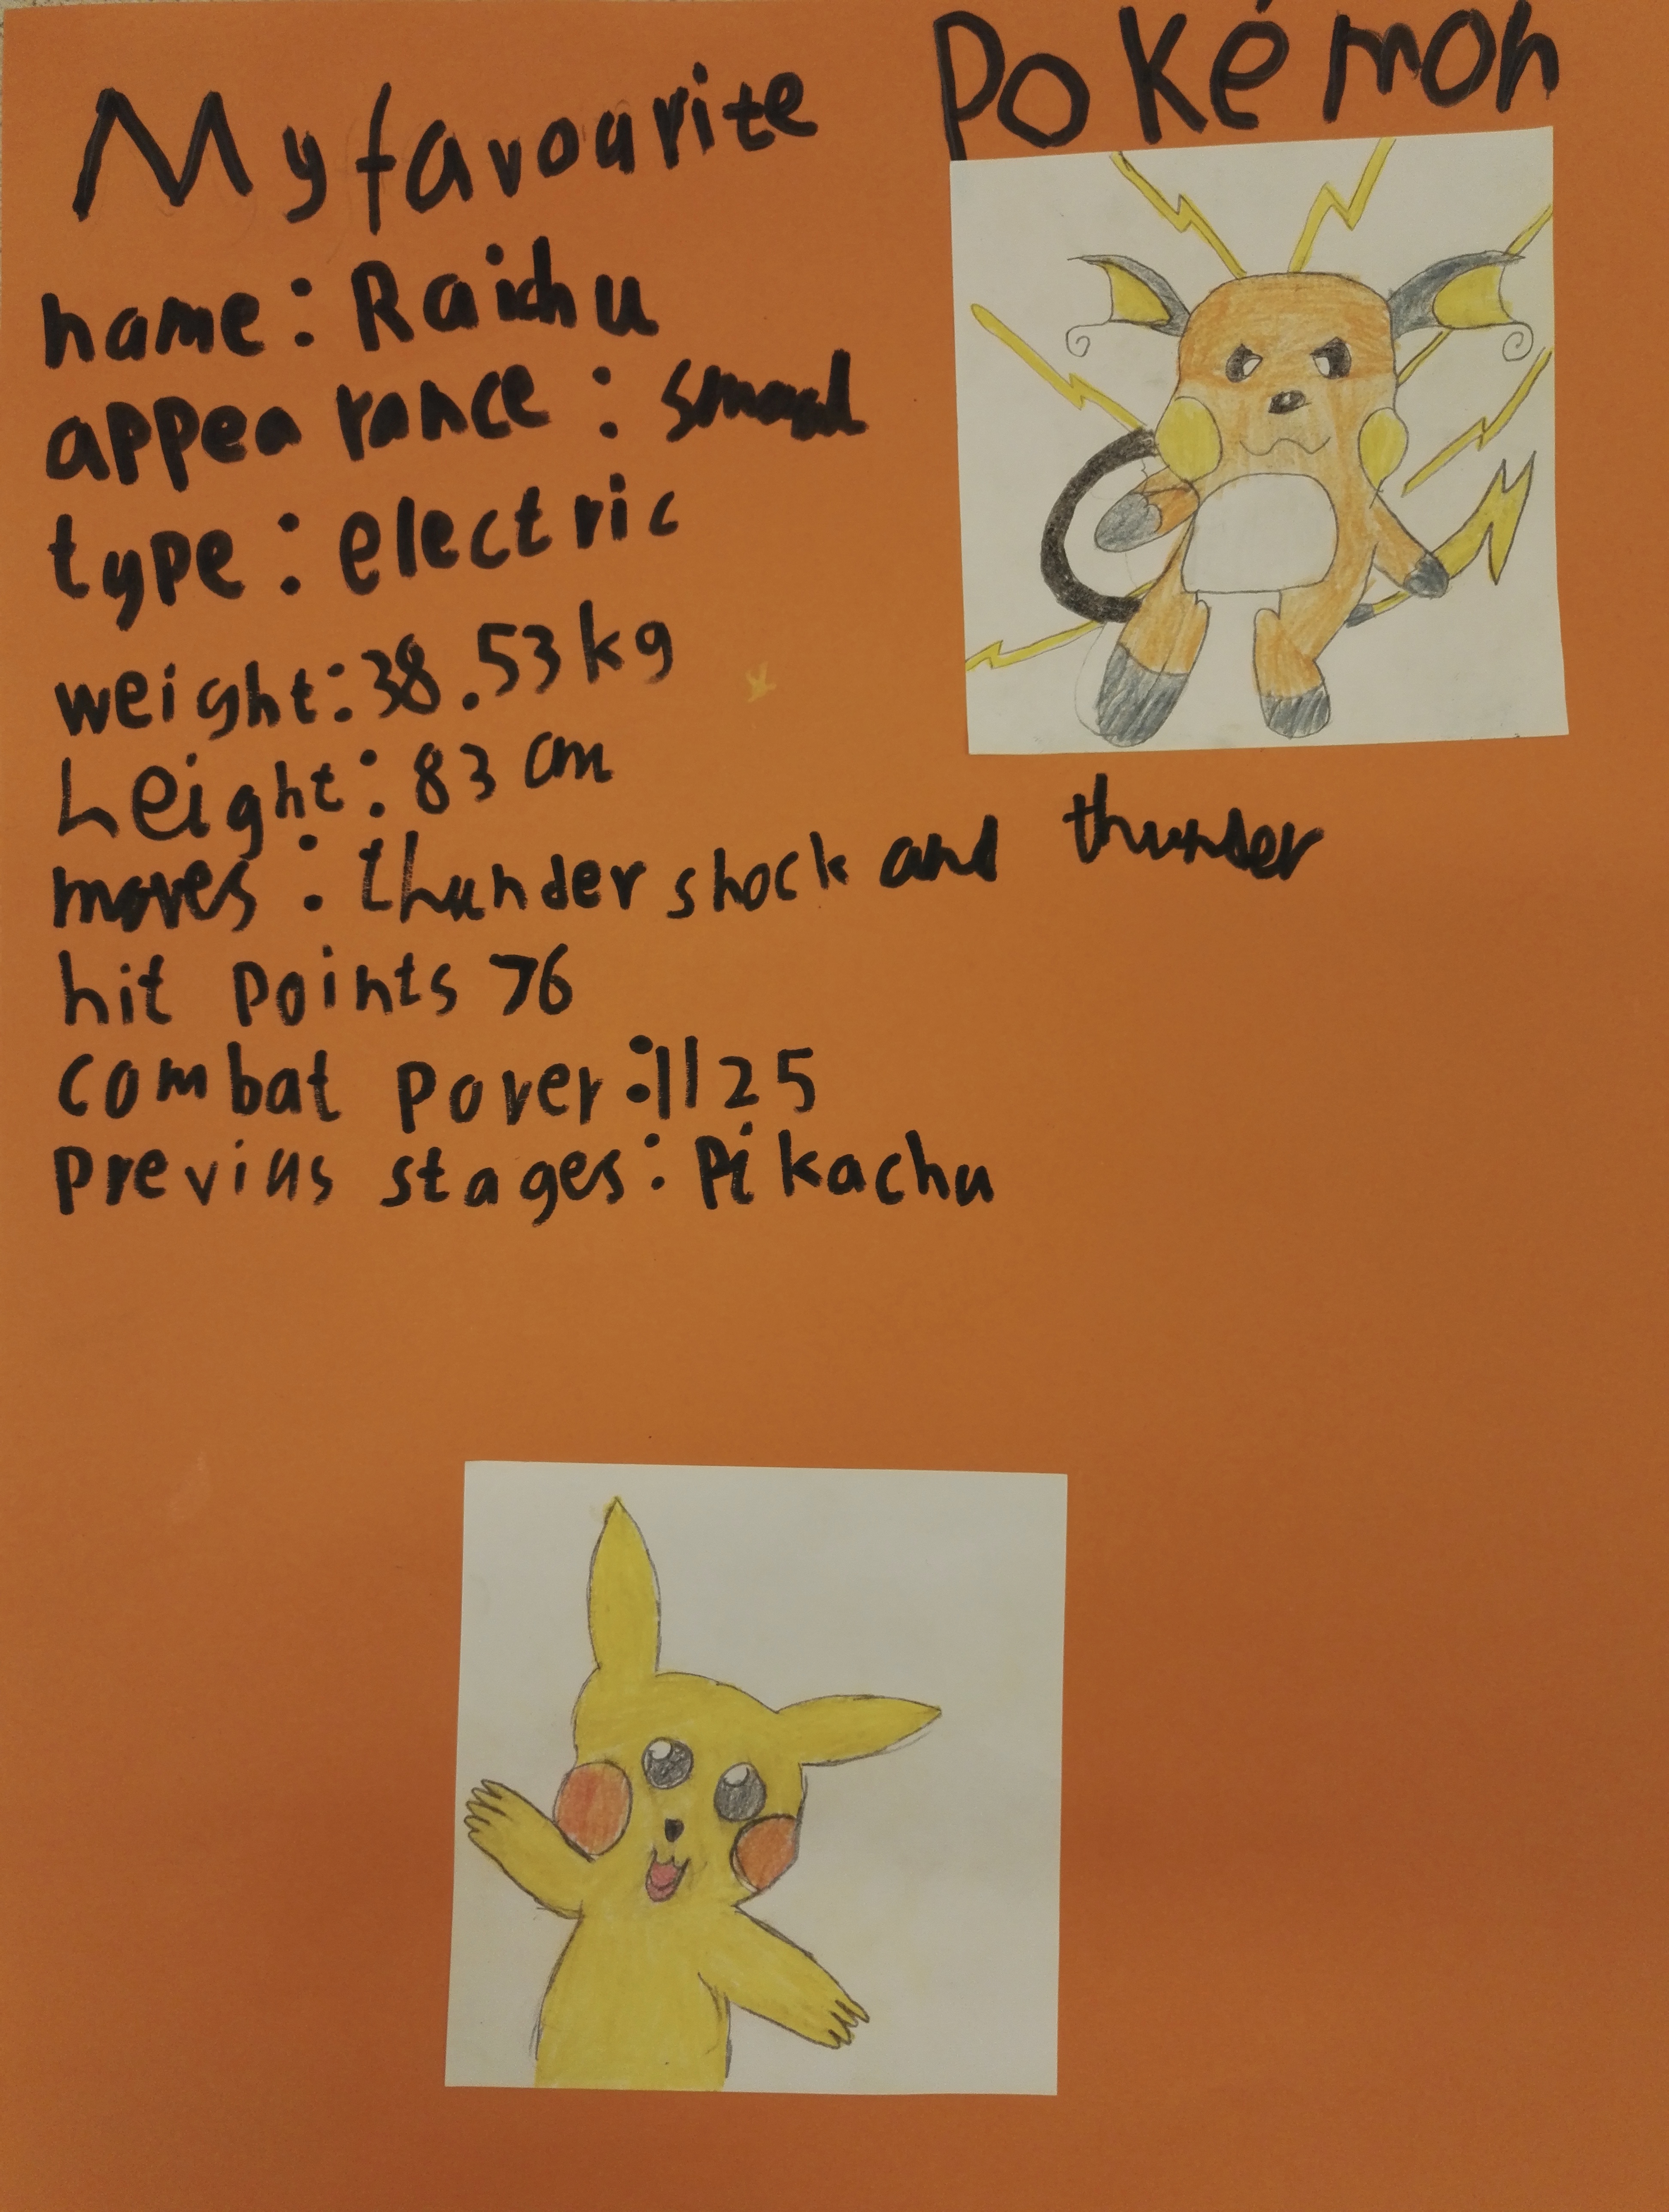 My favourite Pokémon
name: Raichu
appearance: small
type: electric
weight: 38.53 kg
Height: 83 cm
moves: thunder shock and thunder
hit points 76
combat pover: 1125
previus stages: Pikachu